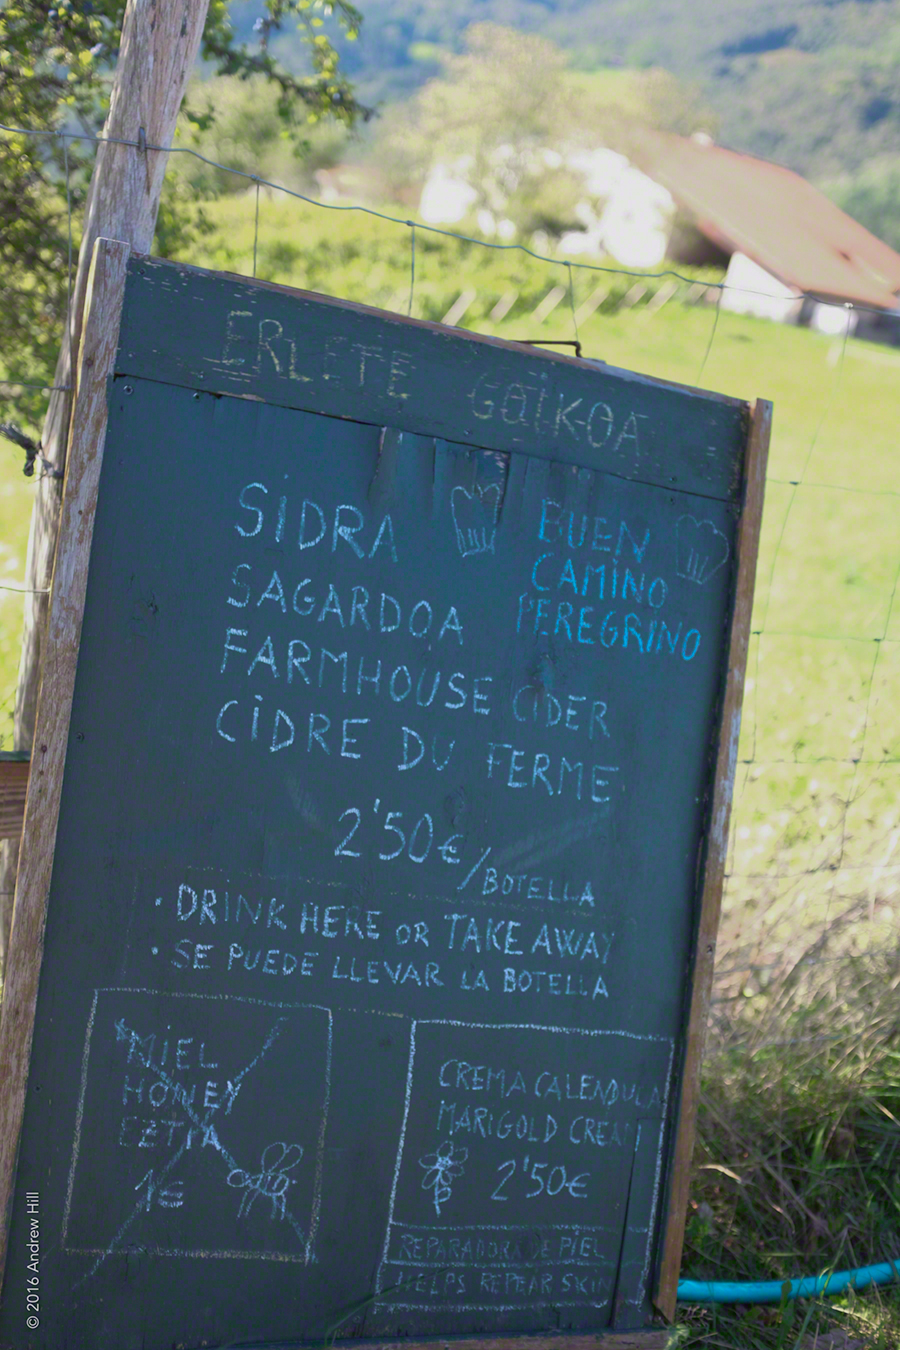 ERLETE GOIKOA
SIDRA
SAGARDOA
FARMHOUSE CIDER
CIDRE DU FERME
BUEN
CAMINO
PEREGRINO
2'50€/BOTELLA
· DRINK HERE OR TAKE AWAY
· SE PUEDE LLEVAR LA BOTELLA
MIEL
HONEY
EZTIA
1€
CREMA CALENDULA
MARIGOLD CREAM
2'50€
REPARADORA DE PIEL
HELPS REPEAR SKIN
© 2016 Andrew Hill